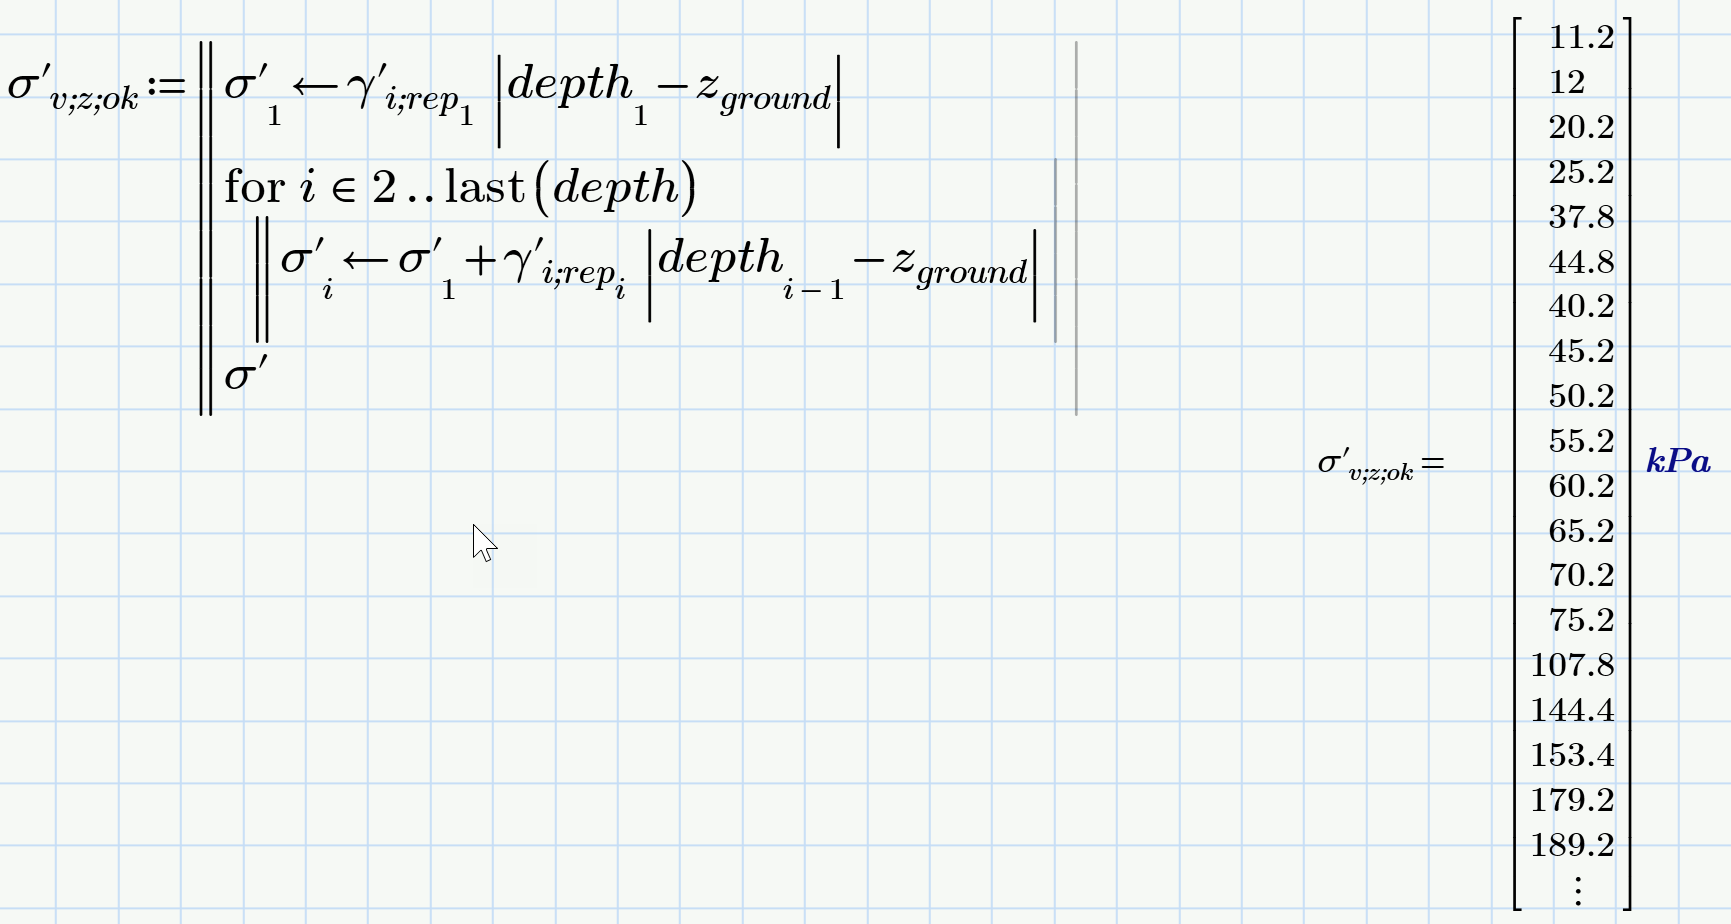 σ′v;z;ok := ‖ σ′1 ← γ′i;rep1 |depth1 − zground|
for i ∈ 2 .. last(depth)
‖ σ′i ← σ′1 + γ′i;repi |depthi − 1 − zground|
σ′
σ′v;z;ok =
11.2
12
20.2
25.2
37.8
44.8
40.2
45.2
50.2
55.2
60.2
65.2
70.2
75.2
107.8
144.4
153.4
179.2
189.2
⋮
kPa